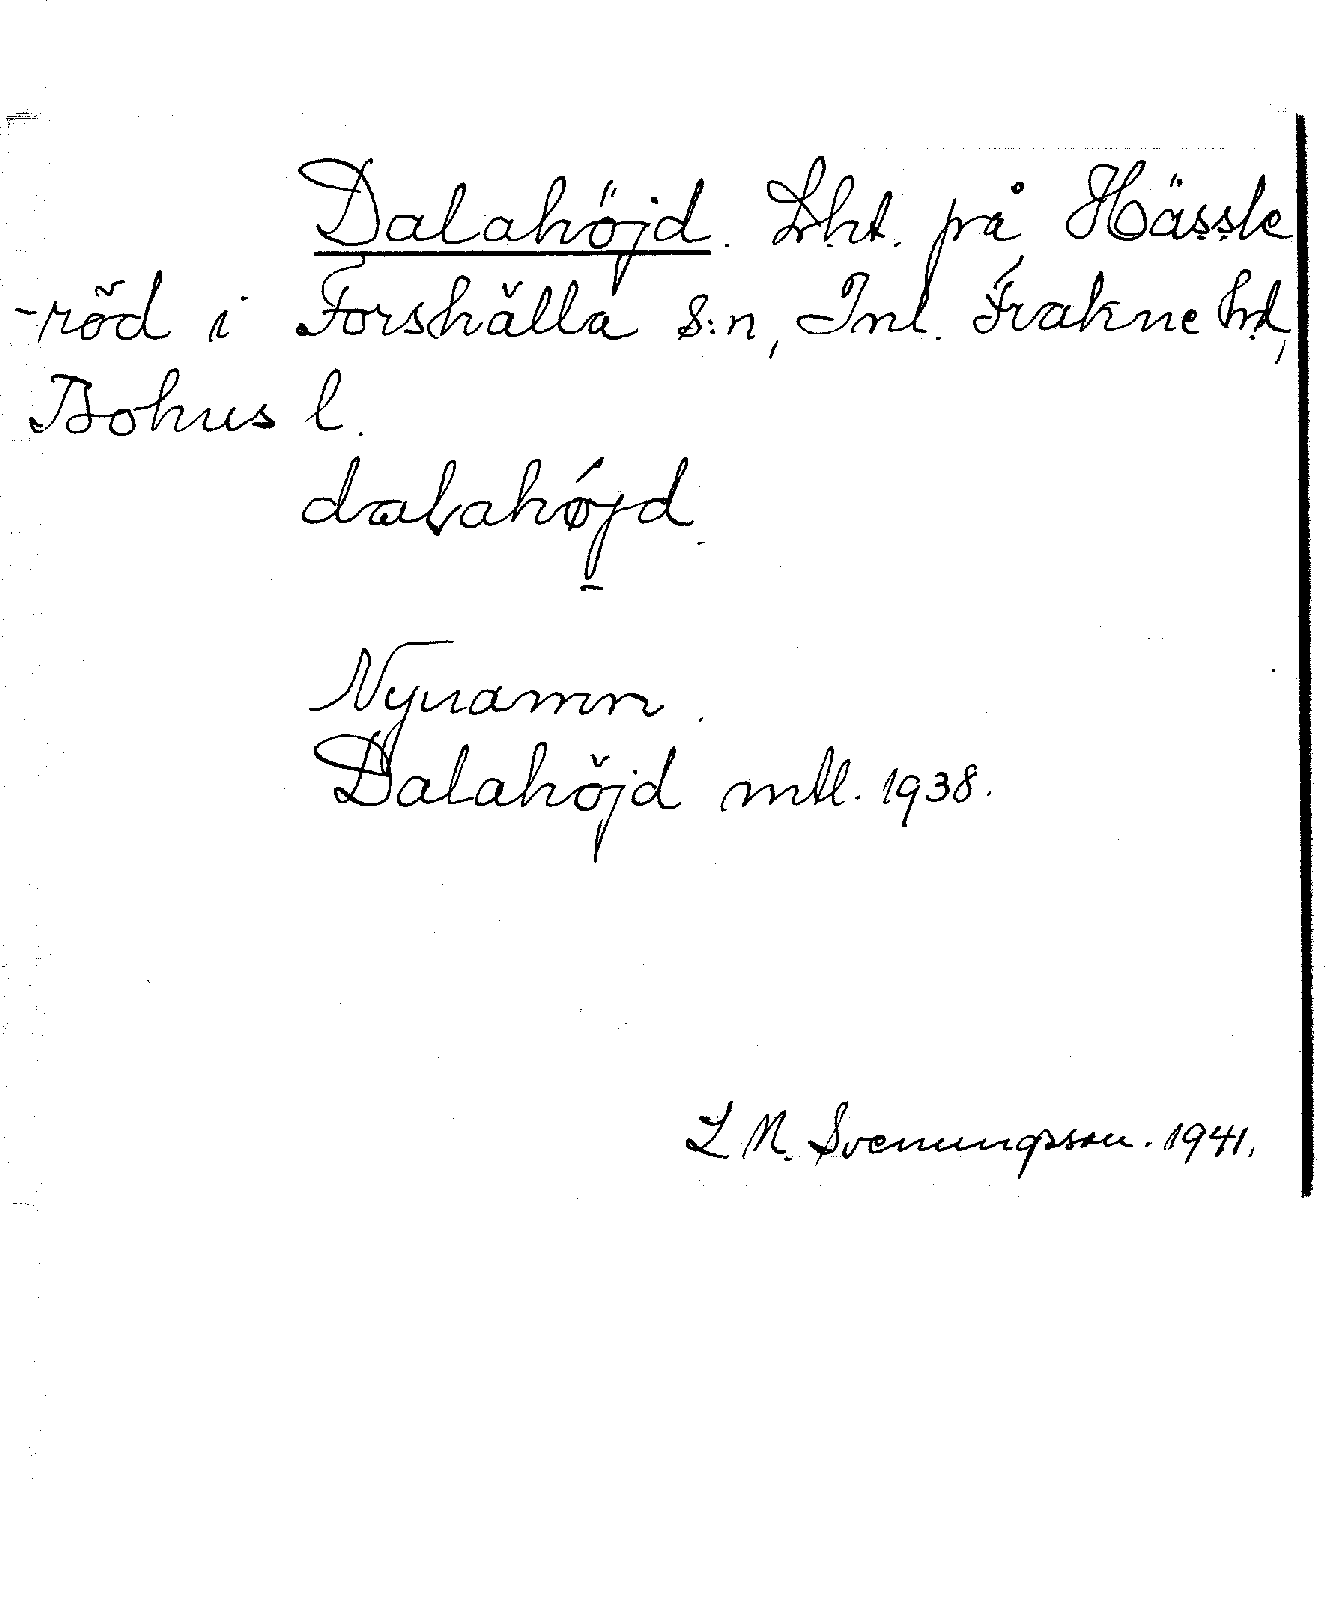 Dalahöjd. Lht. på Hässle
-röd i Forshälla s:n, Inl. Fräkne hd,
Bohus l.
dalahöjd.
Nynamn.
Dalahöjd mtl. 1938.
L M. Svenungsson. 1941.